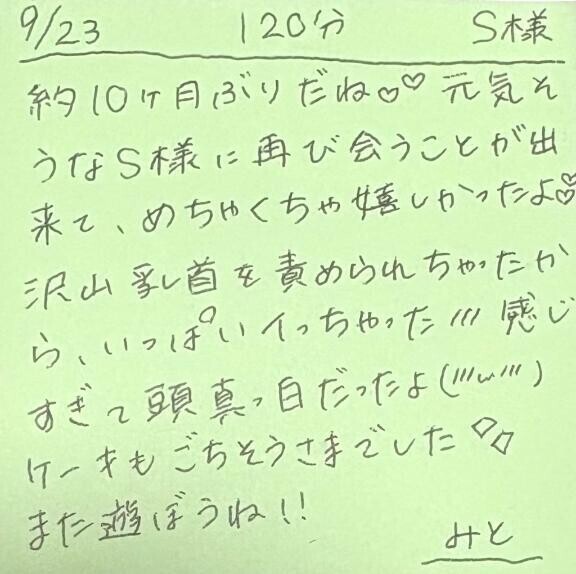 9/23 120分 S様
約10ヶ月ぶりだね♡♡ 元気そ
うなS様に再び会うことが出
来て、めちゃくちゃ嬉しかったよ♡♡
沢山乳首を責められちゃったか
ら、いっぱいイっちゃった/// 感じ
すぎて頭真っ白だったよ(///ω///)
ケーキもごちそうさまでした
また遊ぼうね!!
みと